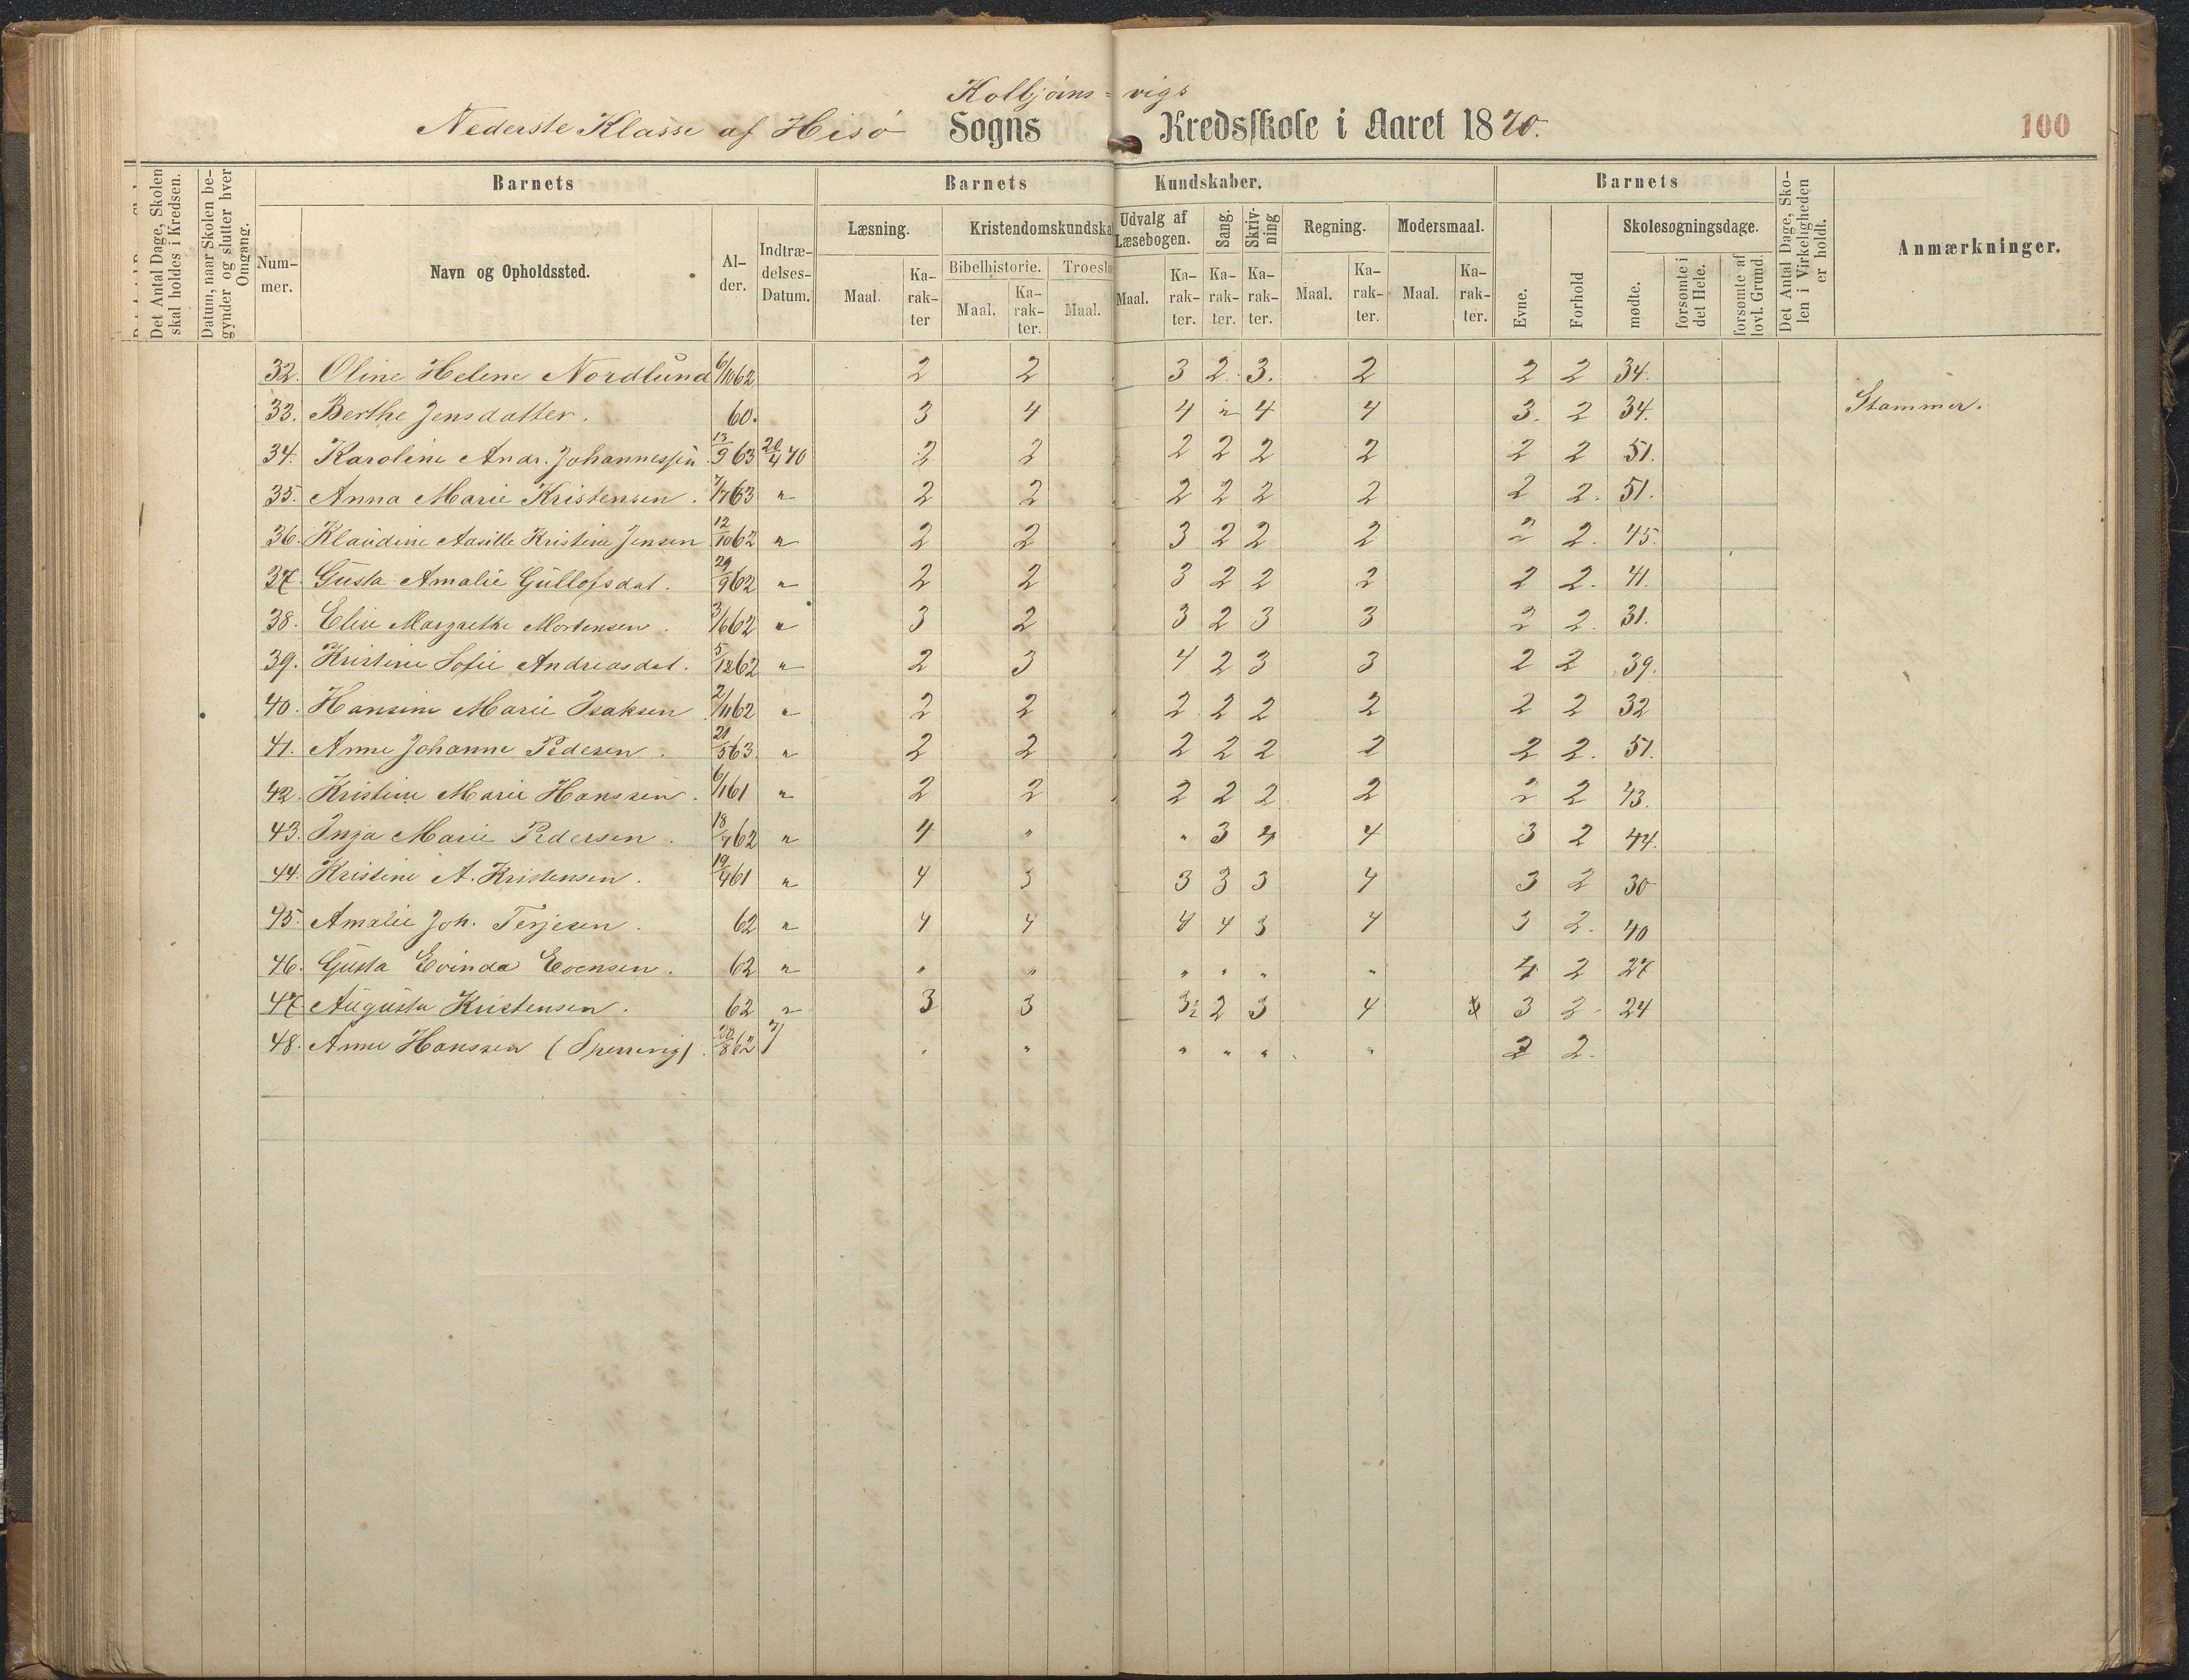 Kolbjøns = vigs
Nederste Klasse af Hisø Sogns Kredsskole i Aaret 1870.
100
Det Antal Dage, Skolen skal holdes i Kredsen.
Datum, naar Skolen begynder og slutter hver Omgang.
Barnets
Barnets Kundskaber.
Barnets
Det Antal Dage, Skolen i Virkeligheden er holdt.
Anmærkninger.
Nummer.
Navn og Opholdssted.
Alder.
Indtrædelses-Datum.
Læsning.
Kristendomskundska
Udvalg af Læsebogen.
Sang.
Skrivning
Regning.
Modersmaal.
Evne.
Forhold
Skolesøgningsdage.
Bibelhistorie.
Troesla
Maal. Karakter Maal. Karakter. Maal. Maal. Karakter. Karakter. Karakter. Maal. Karakter. Maal. Karakter.
mødte. forsømte i det Hele. forsømte af lovl. Grund.
32. Oline Helene Nordlund 6/10 62 2 2 3 2. 3. 2 2 2 34.
33. Berthe Jensdatter. 60. 3 4 4 " 4 4 3. 2 34. Stammer.
34. Karoline Andr. Johannessen. 13/9 63 20/4 70 2 2 2 2 2 2 2 2 51.
35. Anna Marie Kristensen. 7/7 63 " 2 2 2 2 2 2 2 2. 51.
36. Klaudine Aasille Kristine Jensen 12/10 62 " 2 2 3 2 2 2 2 2. 45.
37. Gusta Amalie Gullofsdat. 29/9 62 " 2 2 3 2 2 2 2 2. 41.
38. Elise Margrethe Mortensen. 3/6 62 " 3 2 3 2 3 3 2 2. 31.
39. Kristine Sofie Andreasdat. 5/12 62 " 2 3 4 2 3 3 2 2 39.
40. Hansine Marie Isaksen 2/11 62 " 2 2 2 2 2 2 2 2 32
41. Anne Johanne Pedesen. 21/5 63. " 2 2 2 2 2 2 2 2. 51.
42. Kristine Marie Hanssen. 6/1 61 " 2 2 2 2 2 2 2 2 43.
43. Inga Marie Pedersen. 18/7 62 " 4 " " 3 4 4 3 2 44.
44. Kristine A. Kristensen. 19/4 61 " 4 3 3 3 3 4 3 2 30
45. Amalie Joh. Terjesen. 62 " 4 4 4 4 3 4 3 2. 40
46. Gusta Evinda Evensen. 62 " " " " " " " 4 2 27
47. Augusta Kristensen. 62 " 3 3 3½ 2 3 4 3 2 24
48. Anne Hanssen 62 " " " " " " 2 2.